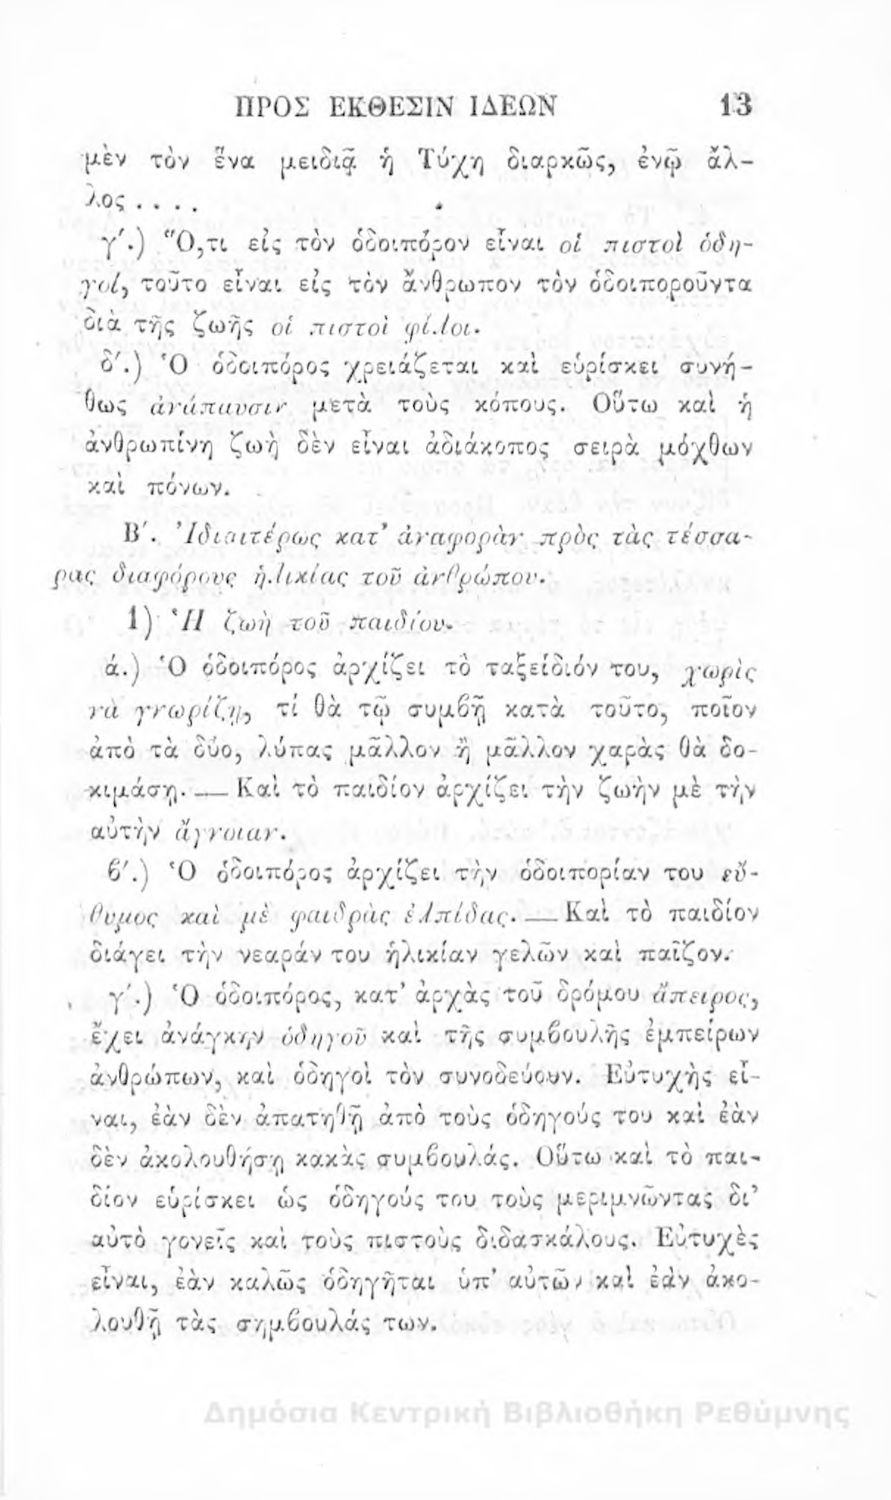 ΠΡΟΣ ΕΚΘΕΣΙΝ ΙΔΕΩΝ 13
μὲν τὸν ἕνα μειδιᾷ ἡ Τύχη διαρκῶς, ἐνῷ ἄλ-
λος . . . .
γ'.) Ὅ,τι εἰς τὸν ὁδοιπόρον εἶναι οἱ πιστοὶ ὁδη-
γοί, τοῦτο εἶναι εἰς τὸν ἄνθρωπον τὸν ὁδοιποροῦντα
διὰ τῆς ζωῆς οἱ πιστοὶ φίλοι.
δ'.) Ὁ ὁδοιπόρος χρειάζεται καὶ εὑρίσκει συνή-
θως ἀνάπαυσιν μετὰ τοὺς κόπους. Οὕτω καὶ ἡ
ἀνθρωπίνη ζωὴ δὲν εἶναι ἀδιάκοπος σειρὰ μόχθων
καὶ πόνων.
Β'. Ἰδιαιτέρως κατ' ἀναφορὰν πρὸς τὰς τέσσα-
ρας διαφόρους ἡλικίας τοῦ ἀνθρώπου.
1) Ἡ ζωὴ τοῦ παιδίου.
ά.) Ὁ ὁδοιπόρος ἀρχίζει τὸ ταξείδιόν του, χωρὶς
νὰ γνωρίζῃ, τί θὰ τῷ συμβῇ κατὰ τοῦτο, ποῖον
ἀπὸ τὰ δύο, λύπας μᾶλλον ἢ μᾶλλον χαρὰς θὰ δο-
κιμάσῃ. — Καὶ τὸ παιδίον ἀρχίζει τὴν ζωὴν μὲ τὴν
αὐτὴν ἄγνοιαν.
β'.) Ὁ ὁδοιπόρος ἀρχίζει τὴν ὁδοιπορίαν του εὔ-
θυμος καὶ μὲ φαιδρὰς ἐλπίδας. — Καὶ τὸ παιδίον
διάγει τὴν νεαράν του ἡλικίαν γελῶν καὶ παῖζον.
γ'.) Ὁ ὁδοιπόρος, κατ' ἀρχὰς τοῦ δρόμου ἄπειρος,
ἔχει ἀνάγκην ὁδηγοῦ καὶ τῆς συμβουλῆς ἐμπείρων
ἀνθρώπων, καὶ ὁδηγοὶ τὸν συνοδεύουν. Εὐτυχὴς εἶ-
ναι, ἐὰν δὲν ἀπατηθῇ ἀπὸ τοὺς ὁδηγούς του καὶ ἐὰν
δὲν ἀκολουθήσῃ κακὰς συμβουλάς. Οὕτω καὶ τὸ παι-
δίον εὑρίσκει ὡς ὁδηγούς του τοὺς μεριμνῶντας δι'
αὐτὸ γονεῖς καὶ τοὺς πιστοὺς διδασκάλους. Εὐτυχὲς
εἶναι, ἐὰν καλῶς ὁδηγῆται ὑπ' αὐτῶν καὶ ἐὰν ἀκο-
λουθῇ τὰς σημβουλάς των.
Δημόσια Κεντρική Βιβλιοθήκη Ρεθύμνης